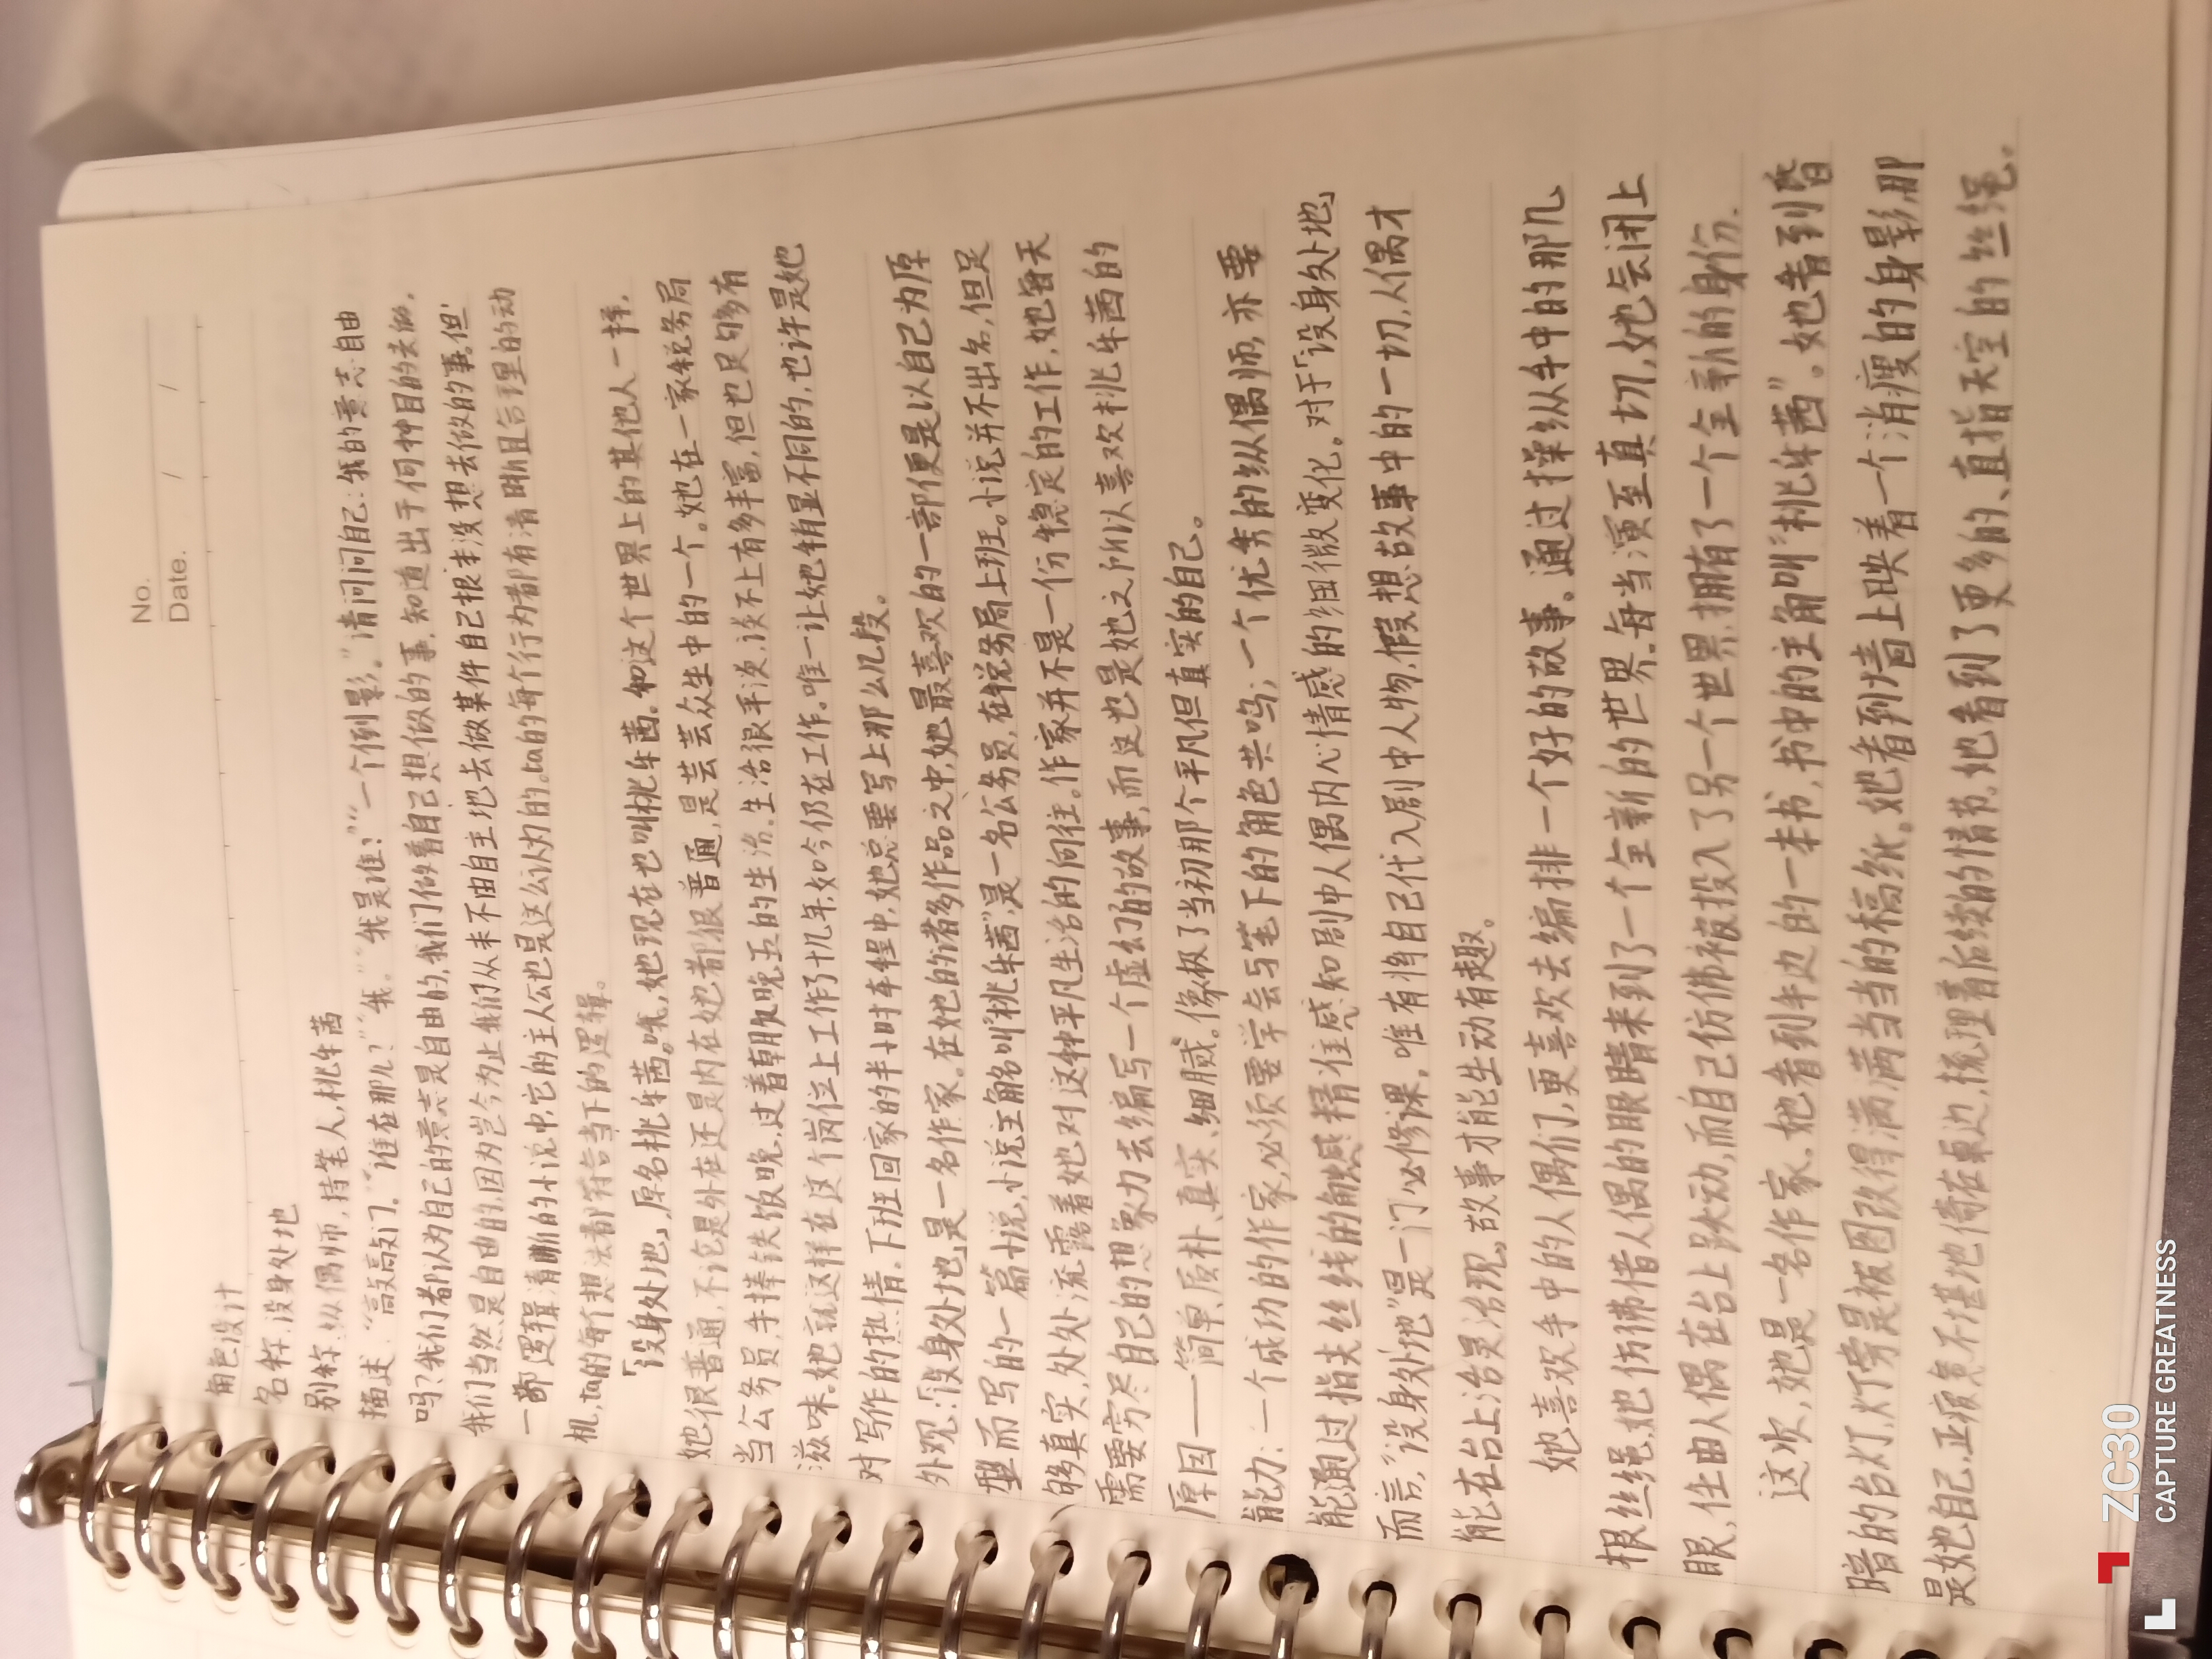 No.
Date. / /
角色设计
名称:设身处地
别称:纵偶师,持笔人,桃牟茜
描述:“高敲高敲门。”“谁在那儿?”“我。”“我是谁?”“一个倒影。”请问问自己:我的意志自由
吗?我们都认为自己的意志是自由的,我们做着自己想做的事,知道出于何种目的去做,
我们当然是自由的,因为岂今为止我们从来不由自主地去做某件自己根本没想去做的事。但
一部逻辑清晰的小说中,它的主人公也是这么认为的。ta的每个行为都有清晰且合理的动
机,ta的每个想法都符合当下的逻辑。
「设身处地」,原名桃牟茜。哦,她现在也叫桃牟茜。和这个世界上的其他人一样,
她很普通,不论是外在还是内在她都很普通,是芸芸众生中的一个。她在一家税务局
当公务员,手捧铁饭碗,过着朝九晚五的生活。生活很平淡,谈不上有多丰富,但也足够有
滋味。她就这样在这个岗位上工作了十几年,如今仍在工作。唯一让她稍显不同的,也许是她
对写作的热情。下班回家的半小时车程中,她总要写上那么几段。
外观:「设身处地」是一名作家。在她的诸多作品之中,她最喜欢的一部便是以自己为原
型而写的一篇小说,小说主角名叫“桃牟茜”,是一名公务员,在税务局上班。小说并不出名,但足
够真实,处处流露着她对这种平凡生活的向往。作家并不是一份稳定的工作,她每天
需要穷尽自己的想象力去编写一个虚幻的故事,而这也是她之所以喜欢桃牟茜的
原因——简单、质朴、真实、细腻。像极了当初那个平凡但真实的自己。
能力:一个成功的作家,必须要学会与笔下的角色共鸣;一个优秀的纵偶师,亦要
能通过指尖丝线的触感精准感知剧中人偶内心情感的细微变化。对于「设身处地」
而言,“设身处地”是一门必修课,唯有将自己代入剧中人物,假想故事中的一切,人偶才
能在台上活灵活现,故事才能生动有趣。
她喜欢手中的人偶们,更喜欢去编排一个好的故事。通过操纵手中的那几
根丝绳,她仿佛借人偶的眼睛来到了一个全新的世界。每当演至真切,她会闭上
眼,任由人偶在台上跃动,而自己仿佛被投入了另一个世界,拥有了一个全新的身份。
这次,她是一名作家。她看到手边的一本书,书中的主角叫“桃牟茜”。她看到昏
暗的台灯,灯旁是被圈改得满满当当的稿纸。她看到墙上映着一个消瘦的身影,那
是她自己,正疲惫不堪地倚在桌边,梳理着后续的情节。她看到了更多的、直指天空的丝绳。
ZC30
CAPTURE GREATNESS